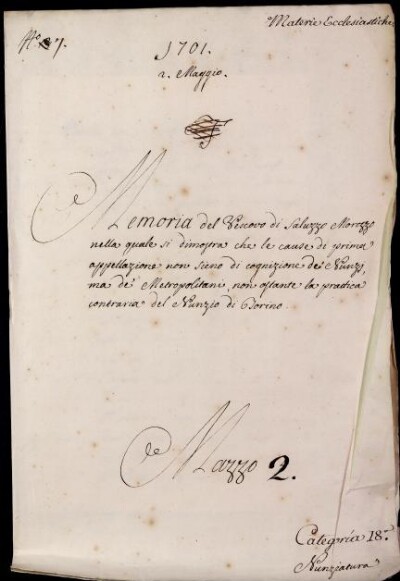 Materie Ecclesiastiche
N.º 37.
1701.
2. Maggio.
Memoria del Vescovo di Saluzzo Morozzo
nella quale si dimostra che le cause di prima
appellazione non sieno di cognizione de' Nunzj,
ma de' Metropolitani, non ostante la prattica
contraria del Nunzio di Torino.
Mazzo 2.
Categoria 18.ª
Nunziatura